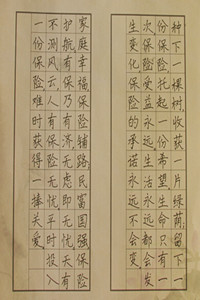 种下一棵树,收获一片绿荫;留下一
份保险,托起一份希望。生命只有一
次保险受益永远生活永远都会发
生变化保险的承诺永远不会变
家庭幸福保险铺路,民富国强保险
护航有保乃有济无虑即无忧天有
不测风云人有保无忧平时投入
一份保险,难时获得一捧关爱。